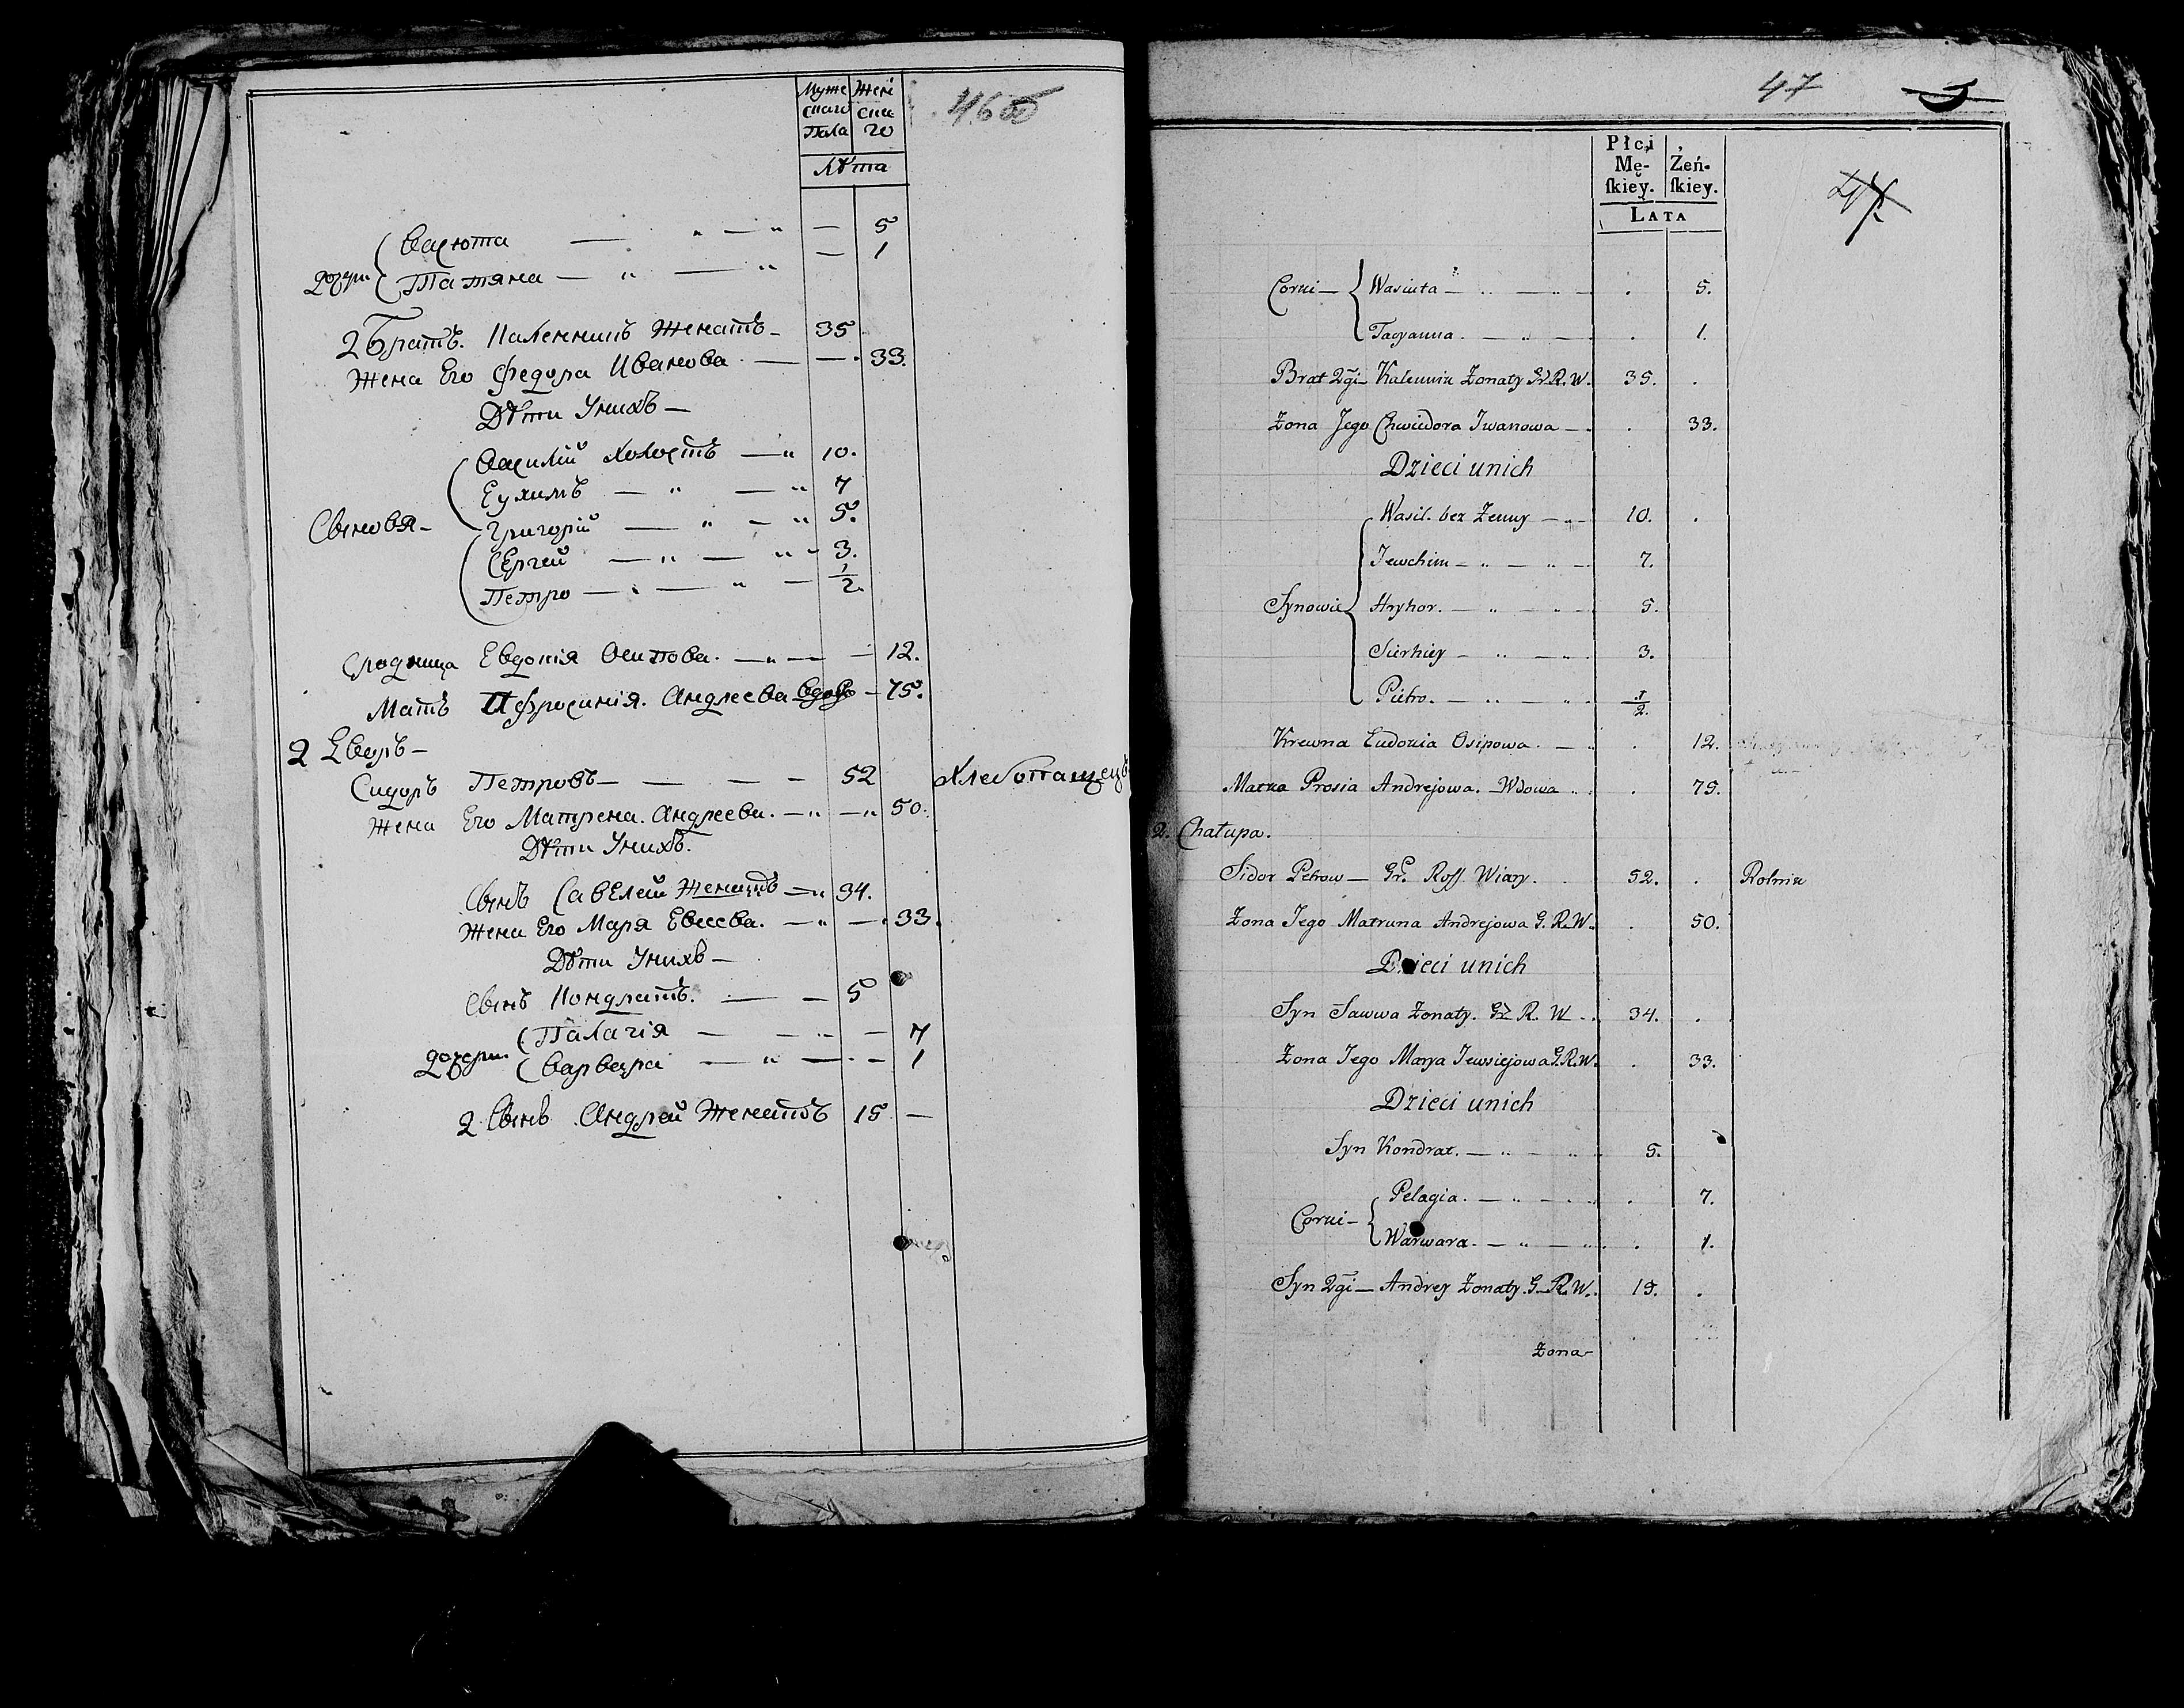 46об
Муже Жен
скаго ска
Пола го
Лѣта
Васюта — " — " — 5
Дочери Татяна — " — " — 1
2 Братъ. Каленникъ Женатъ — 35
Жена Его Федора Иванова — — 33.
Дѣти Унихъ —
Василій Холостъ — " 10.
Еухимъ — " — " 7
Сыновья — Григорій — " — " 5.
Сергей — " — " 3.
Петро — " — " — 1/2.
Сродница Евдокія Осипова. — " — — 12.
Мать Афросинія. Андреева Вдова — 75.
2 Дворъ —
Сидоръ Петровъ — — — — 52 Хлебопашецъ
Жена Его Матрена. Андреева. — " — " 50.
Дѣти Унихъ.
Сынъ Савелей Женатъ — " 34.
Жена Его Маря Евсеева. — " — 33.
Дѣти Унихъ —
Сынъ Кондратъ. — — 5
Палагія — — " — 7
дочери Варвара — " — — 1
2 Сынъ. Андрей Женатъ 15 —
47
Płci
Mę- Żeń-
ſkiey. ſkiey.
LATA
Corki — Wasiuta — " — " — . 5.
Tacyanna. — " — . 1.
Brat 2gi — Kalennik Żonaty Gr. R. W. 35. .
Żona Jego Chwiedora Iwanowa — . . 33.
Dzieci unich
Wasil. bez Żenny — " — 10. .
Jewchim — " — " — 7.
Synowie Hryhor. — " — " — 5.
Sierhiey — " — " — 3.
Pietro. — " — " 1/2.
Krewna Eudokia Osipowa. — " . 12.
Matka Prosia Andrejowa. — Wdowa " . 75.
2. Chałupa.
Sidor Petrow — Gr. Roſſ. Wiary. 52. . Rolnik
Żona Jego Matruna Andrejowa G. R. W. . 50.
Dzieci unich
Syn Sawwa Żonaty. Gr R. W — . 34. .
Żona Jego Marya Jewsiejowa G. R. W. . 33.
Dzieci unich
Syn Kondrat. — " — " 5.
Pelagia. — " — " . 7.
Corki — Warwara. — " — " . 1.
Syn 2gi — Andrey Żonaty. G. R. W. 15. .
Żona —